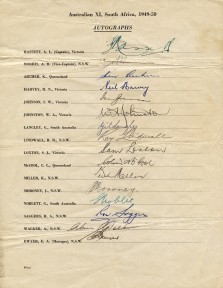 Australian XI, South Africa, 1949-50
AUTOGRAPHS
HASSETT, A. L. (Captain), Victoria
MORRIS, A. R. (Vice-Captain), N.S.W.
ARCHER, K., Queensland
HARVEY, R. N., Victoria Neil Harvey
JOHNSON, I. W., Victoria
JOHNSTON, W. A., Victoria
LANGLEY, G., South Australia
LINDWALL, R. R., N.S.W. Ray Lindwall
LOXTON, S. J., Victoria Sam Loxton
McCOOL, C. L., Queensland
MILLER, K., N.S.W.
MORONEY, J., N.S.W. Moroney
NOBLET, G., South Australia
SAGGERS, R. A., N.S.W. Ron Saggers
WALKER, A., N.S.W. Alan Walker
DWYER, E. A. (Manager), N.S.W.